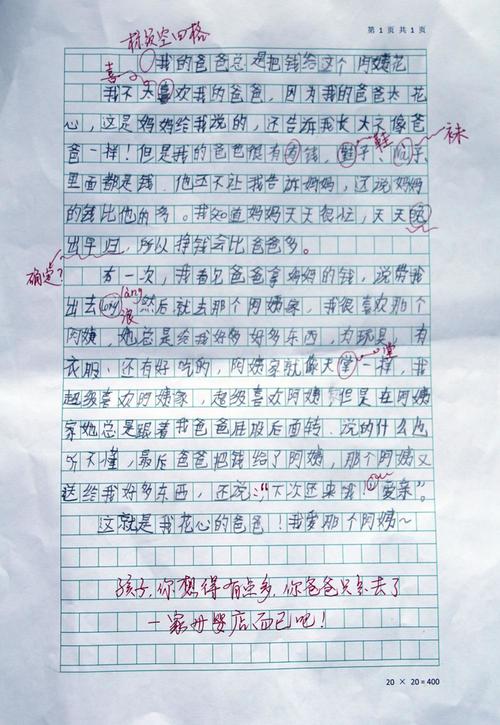 第 1 页 共 1 页
标题空四格
我的爸爸总是把钱给这个阿姨花
喜
我不大喜欢我的爸爸，因为我的爸爸太花
心，这是妈妈给我说的，还告诉我长大不像爸
鞋 袜
爸一样！但是我的爸爸很有钱，鞋子、子
里面都是钱。他还不让我告诉妈妈，还说妈妈
的钱比他的多。我知道妈妈天天很忙，天天晚
出早归，所以挣钱会比爸爸多。
确定？
有一次，我看见爸爸拿妈妈的钱，说带我
làng
出去lang然后就去那个阿姨家，我很喜欢那个
浪
阿姨，她总是给我好多好多东西，有玩具，有
堂
衣服、还有好吃的，阿姨家就像天堂一样，我
超级喜欢阿姨家，超级喜欢阿姨，但是在阿姨
家她总是跟着我爸爸屁股后面转、说的什么也
听不懂，最后爸爸把钱给了阿姨，那个阿姨又
送给我好多东西，还说：“下次还来哦！爱亲”。
这就是我花心的爸爸！我爱那个阿姨～
孩子，你想得有点多，你爸爸只是去了
一家母婴店而已吧！
20 × 20 = 400